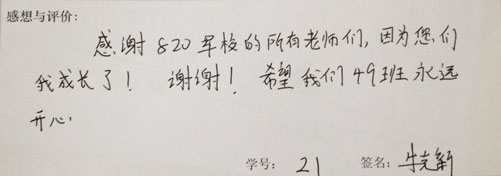 感想与评价：
感谢820军校的所有老师们，因为您们
我成长了！ 谢谢！ 希望我们49班永远
开心，
学号： 21 签名：牛克新